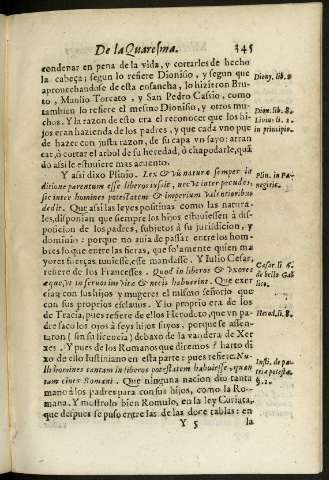 De la Quaresma. 345
condenar en pena de la vida, y cortarles de hecho
la cabeça; segun lo refiere Dionisio, y segun que
aprouechandose de esta ensancha, lo hizieron Bru-
to, Manlio Torcato, y San Pedro Cassio, como
tambien lo refiere el mesmo Dionisio, y otros mu-
chos. Y la razon de esto era el reconocer que los hi-
jos eran hazienda de los padres, y que cada vno pue
de hazer con justa razon, de su capa vn sayo: arran
car, ò cortar el arbol de su heredad, ò chapodarle, quã
do assi le estuuiere mas acuento.
Y assi dixo Plinio. Lex & vũ naturæ semper in
ditione parentum esse liberos iussit, nec vt inter pecudes,
sic inter homines potestatem & imperium valentioribus
dedit. Que assi las leyes positiuas como las natura-
les, disponian que siempre los hijos estuuiessen à dis-
posicion de los padres, subjetos à su jurisdicion, y
dominio: porque no auia de passar entre los hom-
bres lo que entre las fieras, que solamente quien ma
yores fuerças tuuiesse, esse mandasse. Y Iulio Cesar,
refiere de los Francesses. Quod in liberos & vxores
æque, vt in seruos vitæ & necis habuerint. Que exer
ciaq con los hijos y mugeres el mismo señorio que
con sus proprios esclauos. Y lo proprio era de los
de Tracia, pues refiere de ellos Herodoto, que vn pa
dre saco los ojos à seys hijos suyos, porque se assen-
taron (sin su licencia) debaxo de la vandera de Xer
xes. Y pues de los Romanos que diremos? harto di
xo de ello Iustiniano en esta parte: pues refiere. Nu-
lli homines tantam in liberos potestatem habuisse, quan
tam ciues Romani. Que ninguna nacion dio tanta
mano à los padres para con sus hijos, como la Ro-
mana. Y mostrolo bien Romulo, en la ley Curiata,
que despues se puso entre las de las doce tablas: en
Y 5 la
Diony. lib. 2
Dion. lib. 8.
Liuius li. 2.
in principio.
Plin. in Pa-
negiric.
Cæsar. li. 6.
de bello Gal
lico.
Herod. li. 8.
Insti. de pa-
tria potesta.
§. 2.